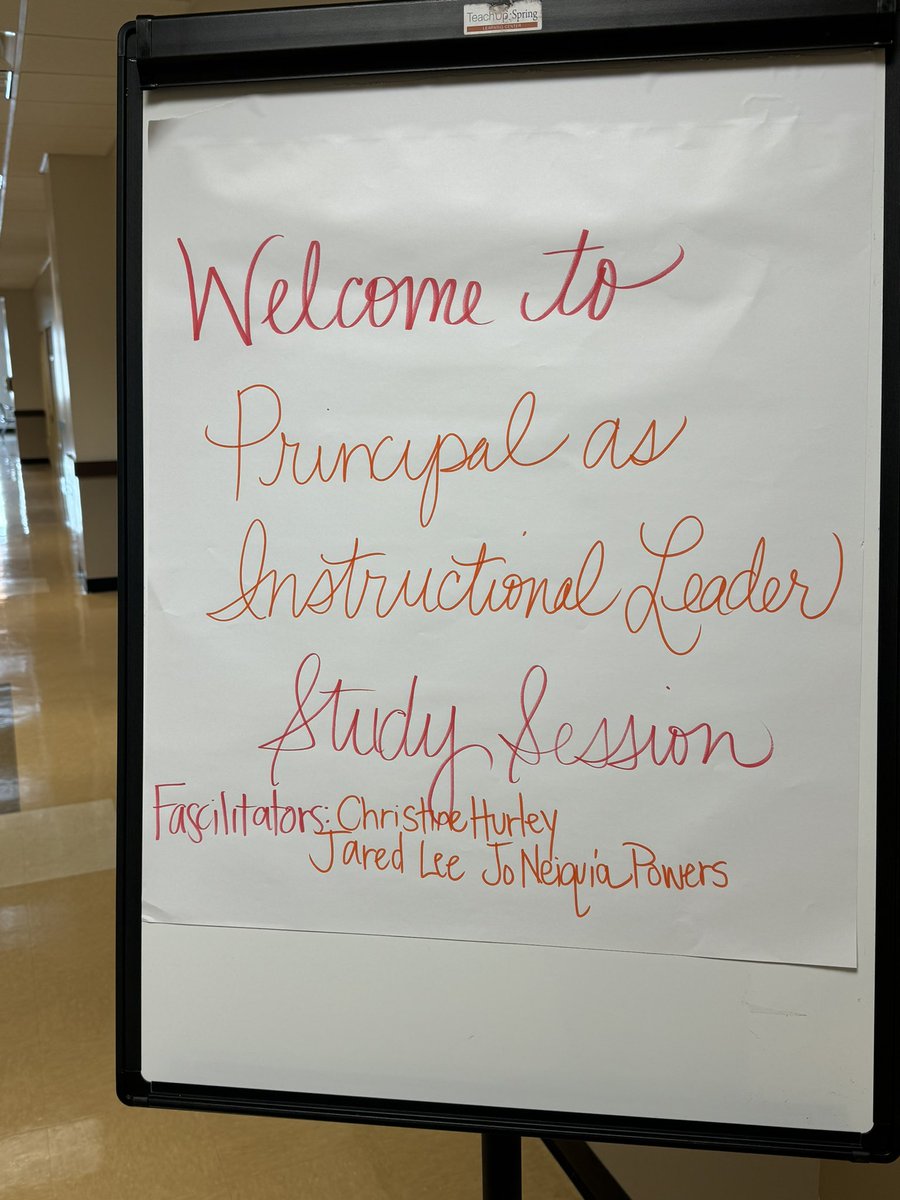 TeachUp Spring
LEARNING CENTER
Welcome to
Principal as
Instructional Leader
Study Session
Fascilitators: Christine Hurley
Jared Lee JoNeiquia Powers